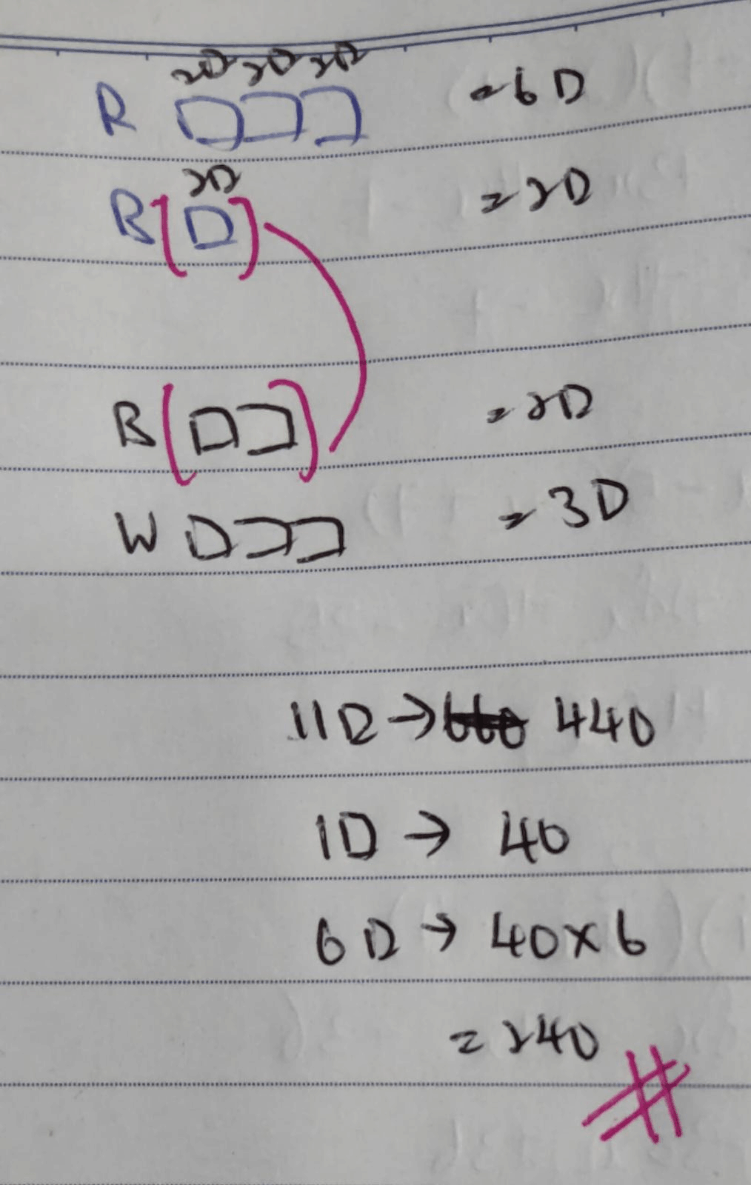 2D 2D 2D
R □□□ = 6D
2D
B(□) = 2D
B(□□) = 2D
W □□□ = 3D
11D → 660 440
1D → 40
6D → 40×6
= 240
#